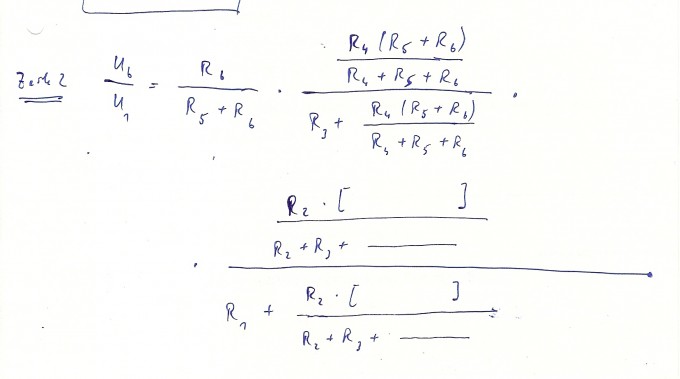 U6/U1 = R6/(R5 + R6) · (R4 (R5 + R6)/(R4 + R5 + R6))/(R3 + R4 (R5 + R6)/(R4 + R5 + R6)) ·
· (R2 · [ ]/(R2 + R3 + ———))/(R1 + R2 · [ ]/(R2 + R3 + ———))